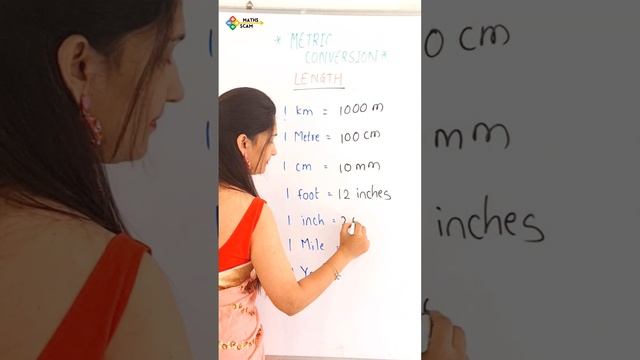 MATHS
SCAM
* METRIC
CONVERSION *
LENGTH
1 km = 1000 m
1 Metre = 100 cm
1 cm = 10 mm
1 foot = 12 inches
1 inch = 2
1 Mile =
1
0 cm
mm
inches